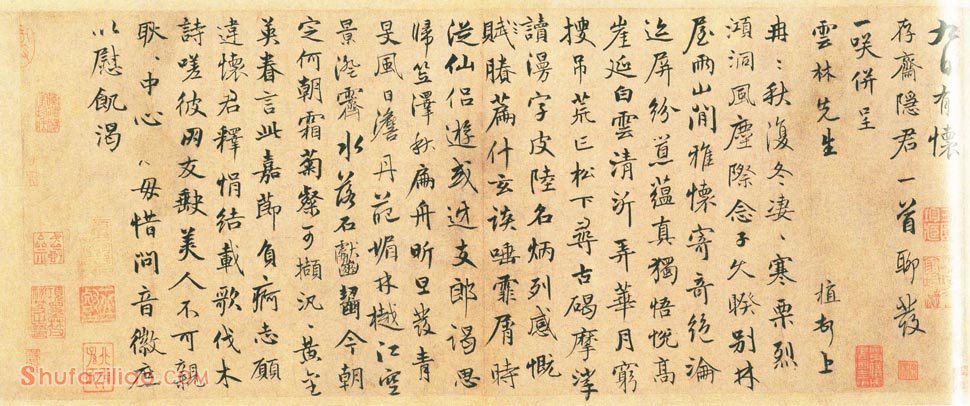 九日有懷
存齋隱君一首聊發
一咲併呈
雲林先生 植

上
冉〻秋復冬凄〻寒栗烈
澒洞風塵際念子久暌別林
屋兩山間雅懷寄奇絕淪
迄屏紛蕴真獨悟悅高
崖延白雲清沂弄華月窮
搜吊荒亡松下尋古碣摩挲
讀漫字皮陸名炳列感慨
賦賸篇什玄談唾霏屑時
從仙侶遊或迓支郎謁思
歸笠澤秋扁舟昕旦發青
旻風日澹丹葩媚林樾江空
景澄霽水落石巘齧今朝
定何朝霜菊粲可擷況〻黄金
英眷言此嘉節負痾志願
違懷君釋悁結載歌伐木
詩嗟彼朋友缺美人不可親
耿〻中心〻毋惜問音徽庶
以慰飢渴
Shufaziliao.COM